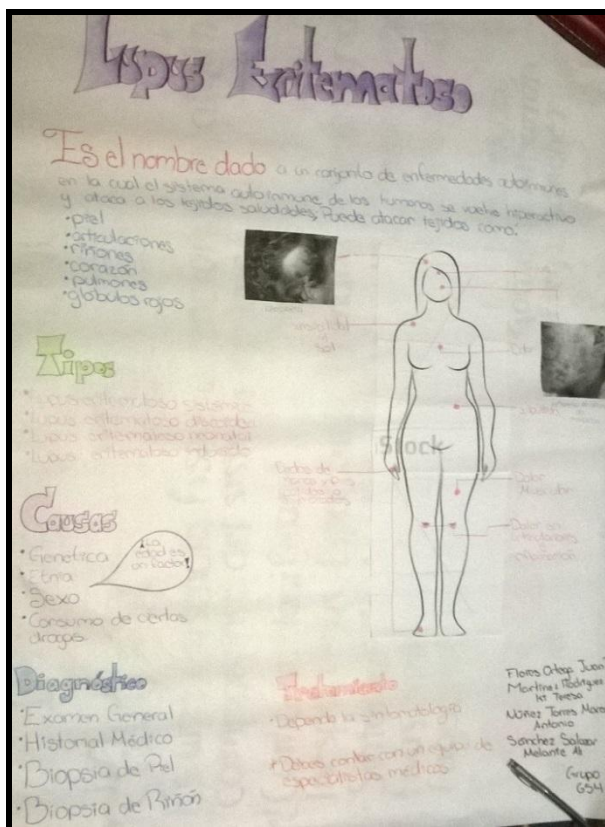 Lupus Eritematoso
Es el nombre dado a un conjunto de enfermedades autoinmunes
en la cual el sistema autoinmune de los humanos se vuelve hiperactivo
y ataca a los tejidos saludables, Puede atacar tejidos como:
•piel
•articulaciones
•riñones
•corazón
•pulmones
•globulos rojos
Tipos
•Lupus eritematoso
•Lupus eritematoso discoide
•Lupus eritematoso neonatal
•Lupus eritematoso inducido
Causas
•Genética
•Etnia
•Sexo
•Consumo de ciertas
drogas
¡La
edad es
un factor!
sol
iStock
Dedos de
Dolor
Muscular
Dolor en
Diagnóstico
•Examen General
•Historial Médico
•Biopsia de Piel
•Biopsia de Riñón
Tratamiento
•Depende la sintomatología
•Debes contar con un equipo de
especialistas médicos
Flores Ortega Juan
Martínez Rodríguez
Teresa
Núñez Torres
Antonio
Sánchez Salazar
Melanie
Grupo
634